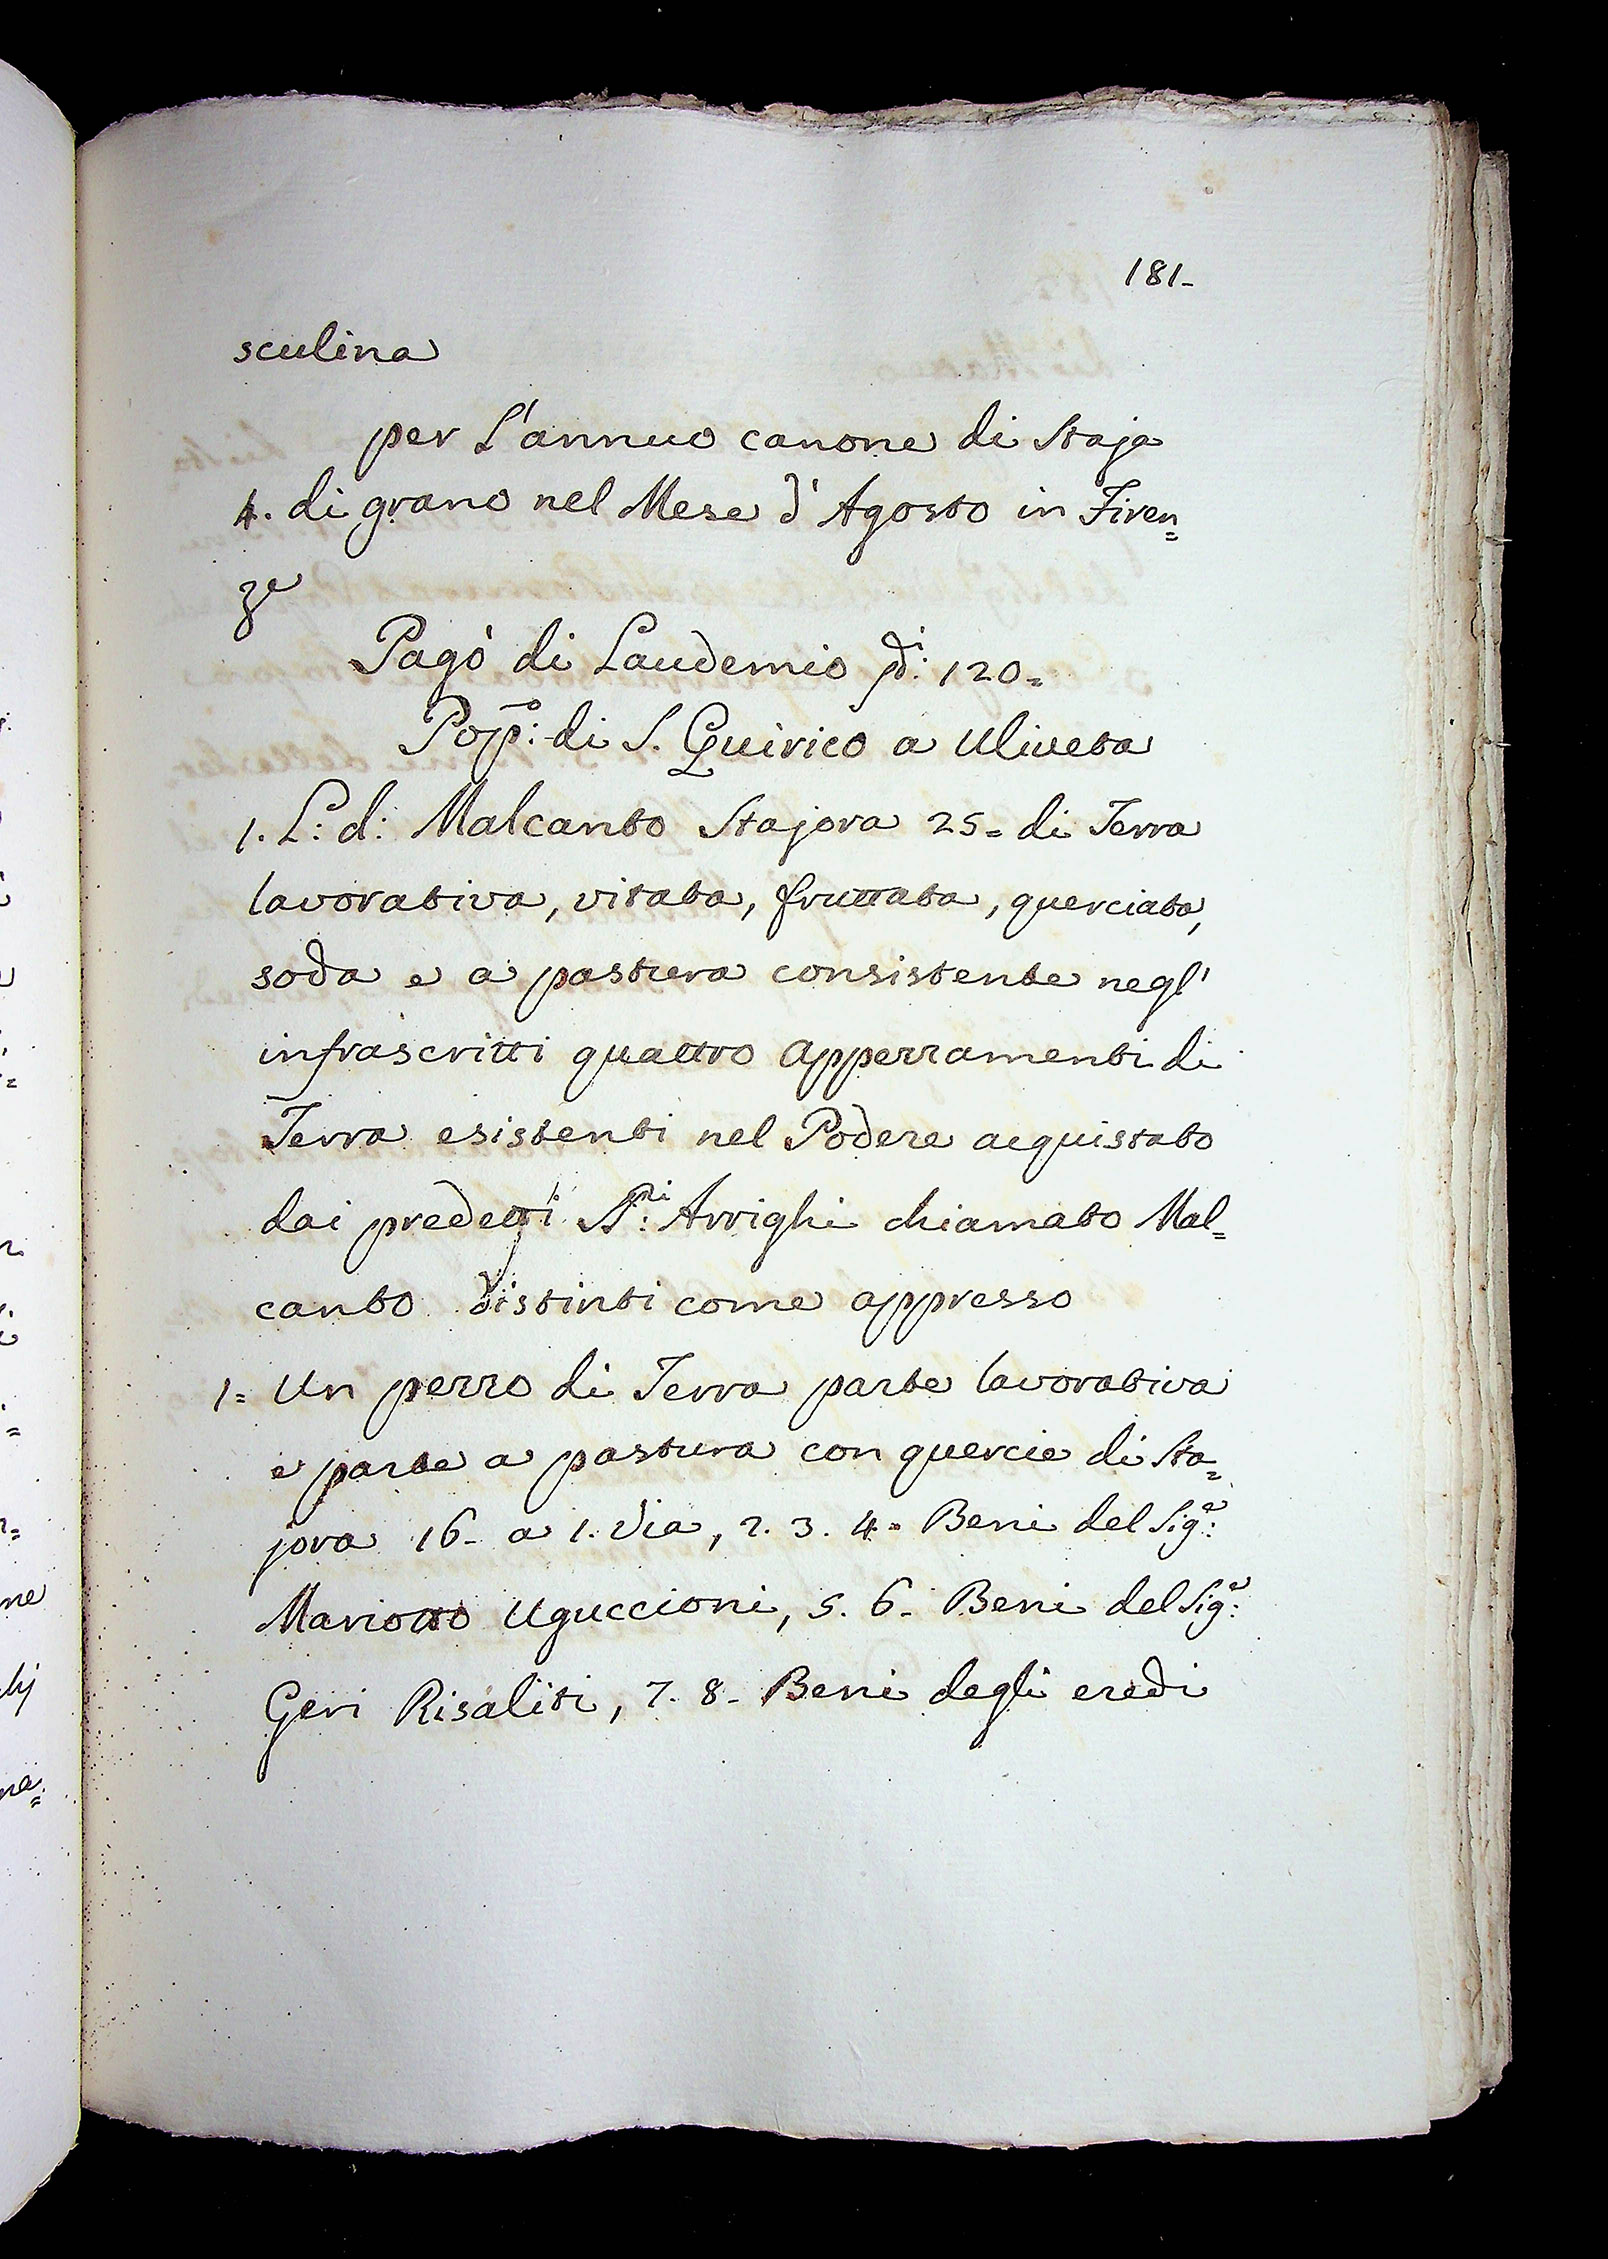 181-
sculina
per L'annuo canone di Staja
4. di grano nel Mese d'Agosto in Firen=
ze
Pagò di Laudemio 120=
Pop.o: di S. Quirico a Uliveta
1. L: d: Malcanto Stajora 25= di Terra
lavorativa, vitata, fruttata, querciata,
soda e a pastura consistente negl'
infrascritti quattro Appezzamenti di
Terra esistenti nel Podere acquistato
dai predetti SS.ri: Arrighi chiamato Mal=
canto distinti come appresso
1= Un pezzo di Terra parte lavorativa
e parte a pastura con quercie di Sta=
jora 16- a 1. Via, 2. 3. 4= Beni del Sig.e:
Mariotto Uguccioni, 5. 6- Beni del Sig.e:
Geri Risaliti, 7. 8- Beni degli eredi